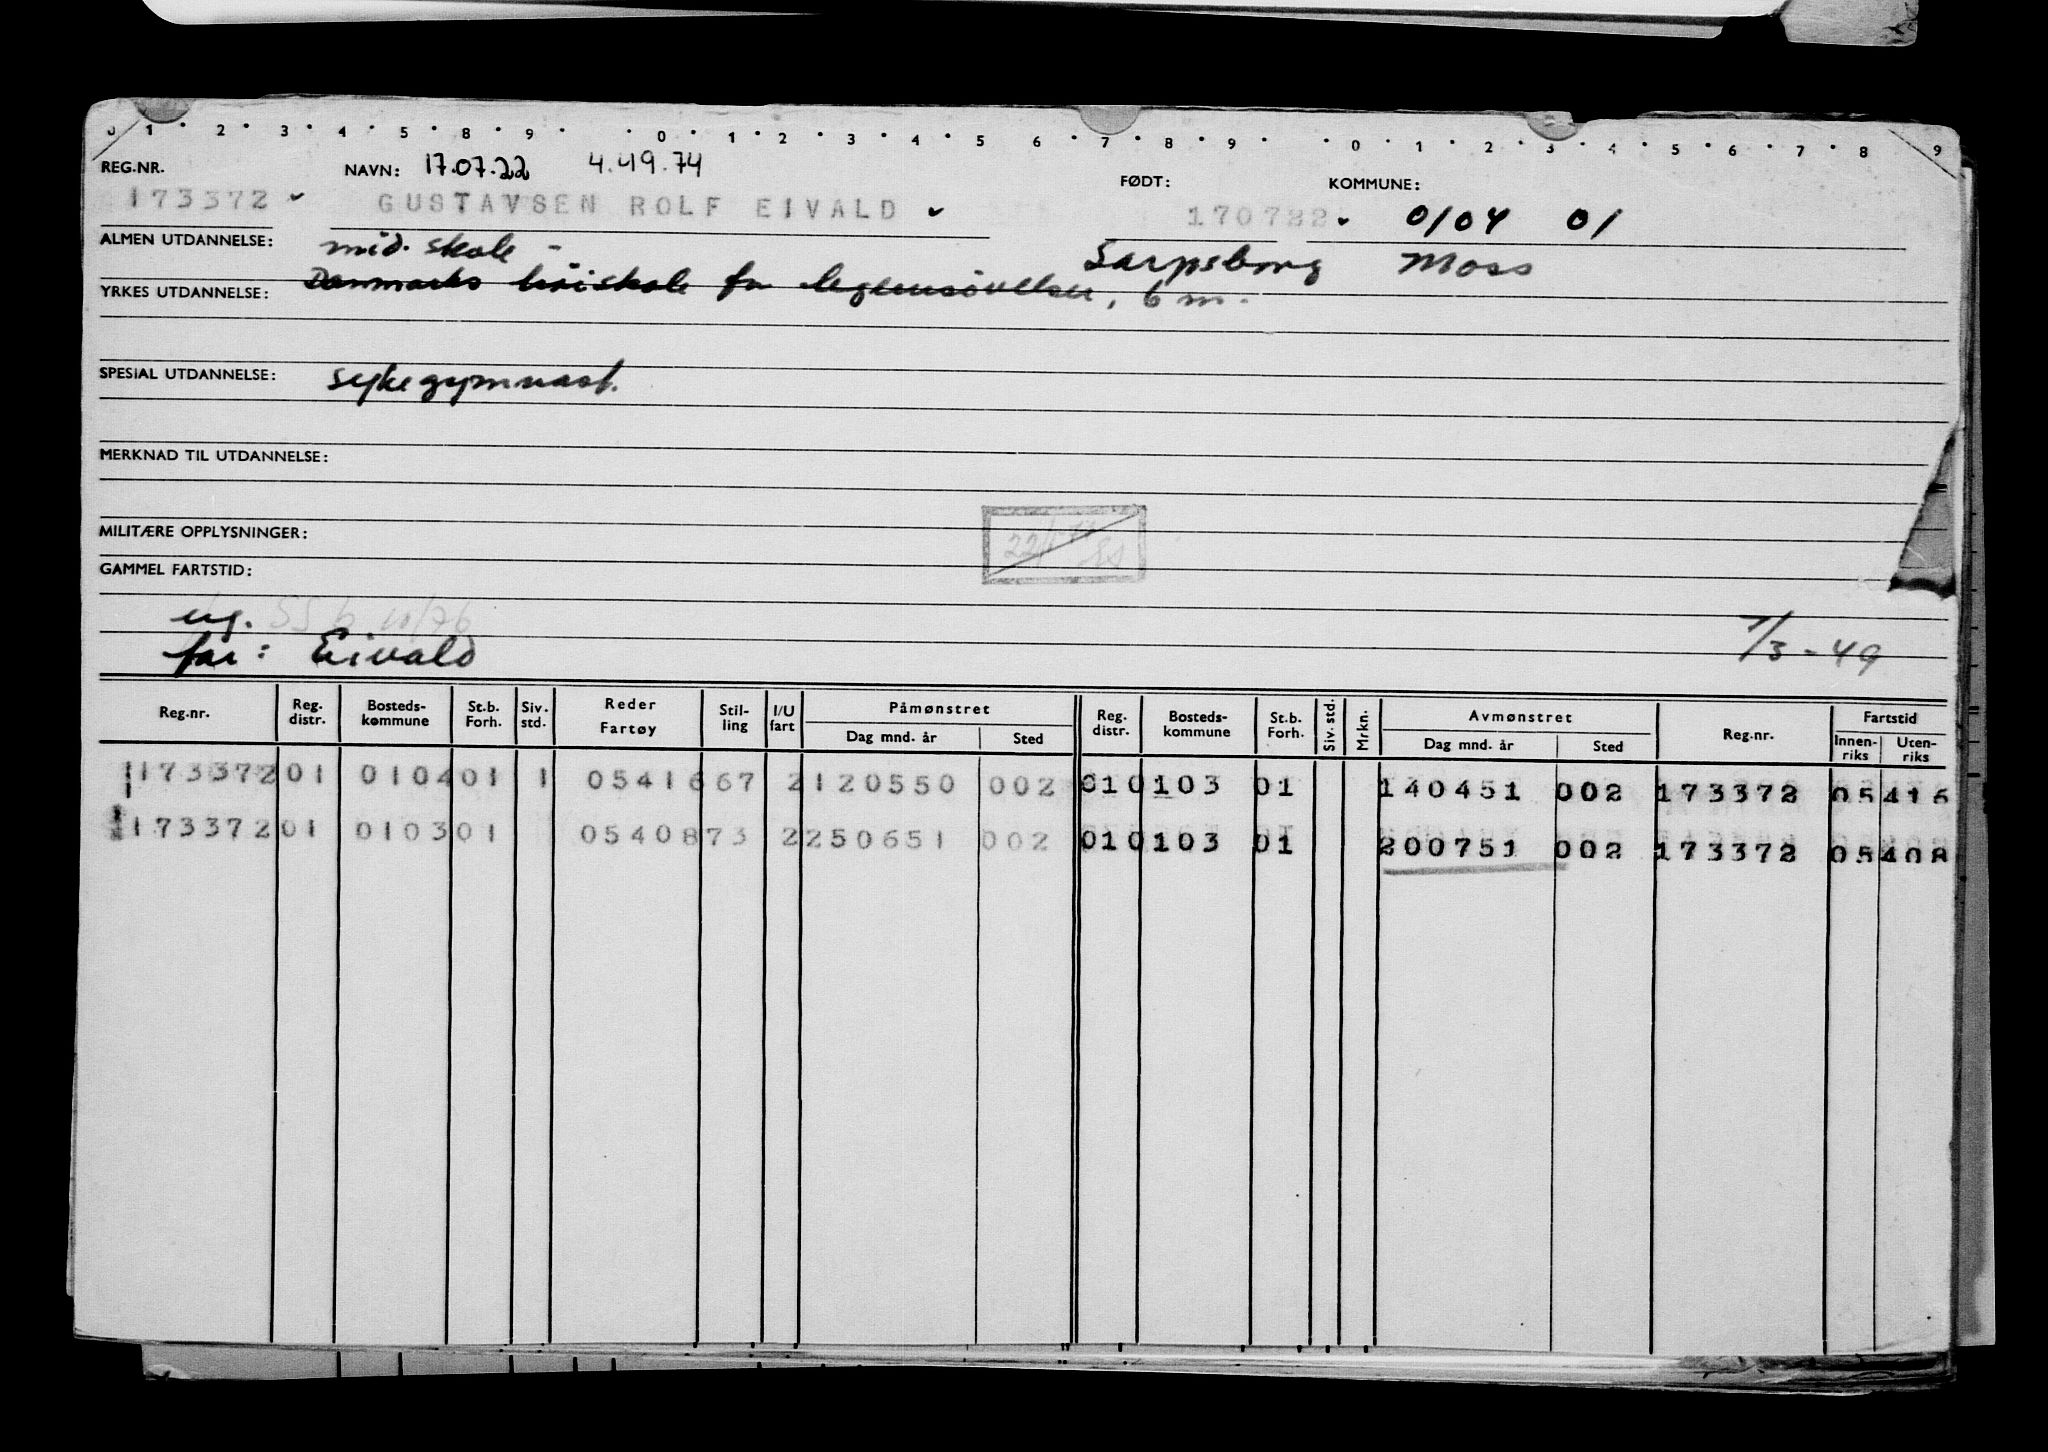 1 2 3 4 5 8 9 0 1 2 3 4 5 6 7 8 9 0 1 2 3 4 5 6 7 8 9
REG.NR. NAVN: 17.07.22 4.49.74 FØDT: KOMMUNE:
173372 GUSTAVSEN ROLF EIVALD 170722 0104 01
ALMEN UTDANNELSE: mid. skole - Sarpsborg Moss
YRKES UTDANNELSE: Danmarks høiskole for legemsøvelser, 6 m.
SPESIAL UTDANNELSE: sykegymnast.
MERKNAD TIL UTDANNELSE:
MILITÆRE OPPLYSNINGER:
GAMMEL FARTSTID:
ug. SSb 10/76
far: Eivald 1/3-49
Reg.nr. Reg. distr. Bosteds-kommune St.b. Forh. Siv. std. Reder Fartøy Stil-ling I/U fart Påmønstret Dag mnd. år Sted Reg. distr. Bosteds-kommune St.b. Forh. Siv. std. Mrkn. Avmønstret Dag mnd. år Sted Reg.nr. Fartstid Innen-riks Uten-riks
173372 01 0104 01 1 0541667 2 120550 002 01 0103 01 140451 002 173372 05416
173372 01 0103 01 0540873 2 250651 002 01 0103 01 200751 002 173372 05408